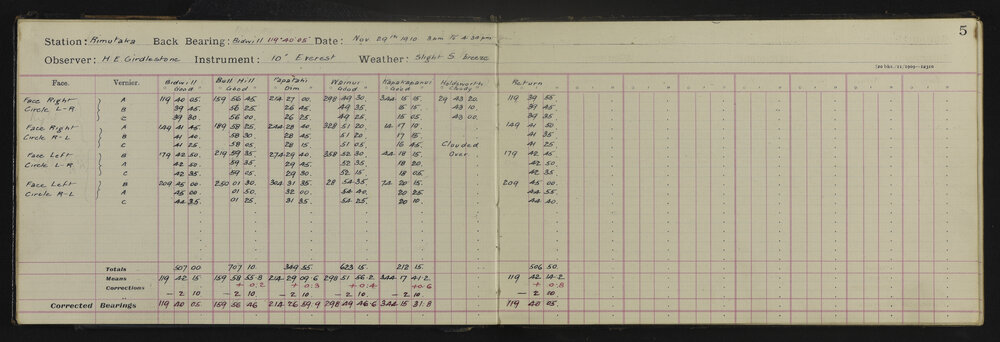 5
Station: Rimutaka Back Bearing: Bidwill 119° 40' 05" Date: Nov. 29th 1910 3 pm to 4.30 pm
Observer: H E Girdlestone Instrument: 10" Everest Weather: Slight S. breeze
Face. Vernier. Bidwill Bull Hill Papatahi Wainui Kapakapanui Holdsworth Return
Good Good Dim Good Good Cloudy
Face Right A 119 40 05 159 56 45 214 27 00 298 49 30 344 15 15 29 43 20 119 39 55
Circle L-R B 39 45 56 25 26 45 49 35 15 15 43 10 39 45
C 39 30 56 00 26 25 49 25 15 05 43 00 39 35
Face Right A 149 41 45 189 58 25 244 28 40 328 51 20 14 17 10 149 41 50
Circle R-L B 41 40 58 30 28 45 51 20 17 15 41 35
C 41 25 58 05 28 15 51 05 16 45 Clouded 41 25
Face Left B 179 42 50 219 59 35 274 29 40 358 52 30 44 18 15 Over 179 42 45
Circle L-R A 42 50 59 35 29 45 52 35 18 20 42 50
C 42 35 59 05 29 30 52 15 18 05 42 35
Face Left B 209 45 00 250 01 30 304 31 35 28 54 35 74 20 15 209 45 00
Circle R-L A 45 00 01 50 32 00 54 40 20 25 44 55
C 44 35 01 25 31 35 54 25 20 10 44 40
Totals 507 00 707 10 349 55 623 15 212 15 506 50
Means 119 42 15 159 58 55.8 214 29 09.6 298 51 56.2 344 17 41.2 119 42 14.2
Corrections + 0.2 + 0.3 + 0.4 + 0.6 + 0.8
– 2 10 – 2 10 – 2 10 – 2 10 – 2 10 – 2 10
Corrected Bearings 119 40 05 159 56 46 214 26 59.9 298 49 46.6 344 15 31.8 119 40 05